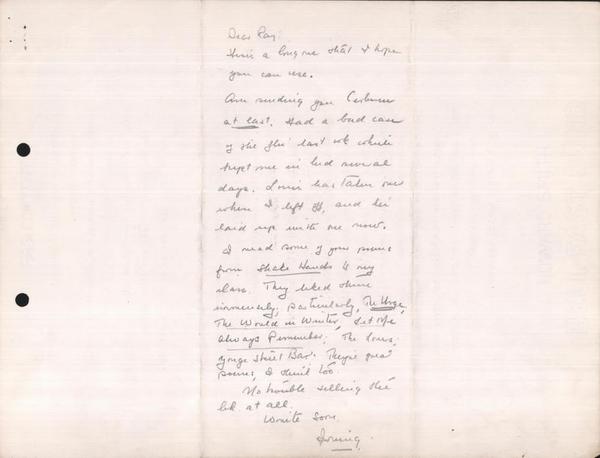 Dear Ray,
Here's a long one that I hope
you can use.
Am sending you Cerberus
at last. Had a bad case
of the flu last wk which
kept me in bed several
days. Louis has taken over
where I left off, and he's
laid up with one now.
I read some of your poems
from Shake Hands to my
class. They liked them
immensely, particularly, The
The World in Winter, Let Me
Always Remember, The Lones,
Yonge Street Bar. They're great
poems, I think too.
No trouble selling the
bk. at all.
Write soon.
Irving